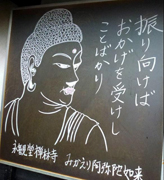 振り向けば
おかげを受けし
ことばかり
永観堂禅林寺 みかえり阿弥陀如来